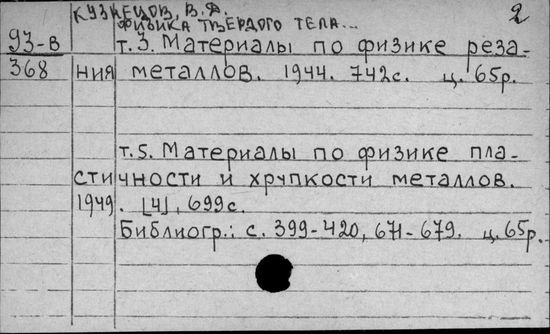 КУЗНЕЦОВ, В.Д.
ФИЗИКА ТВЕРДОГО ТЕЛА...
2
93-в
368
т.3. Материалы по физике реза-
ния металлов. 1944. 742с. ц. 65р.
т.5. Материалы по физике пла-
стичности и хрупкости металлов.
1949. [4], 699с.
Библиогр.: с. 399-420, 671-679. ц. 65р.